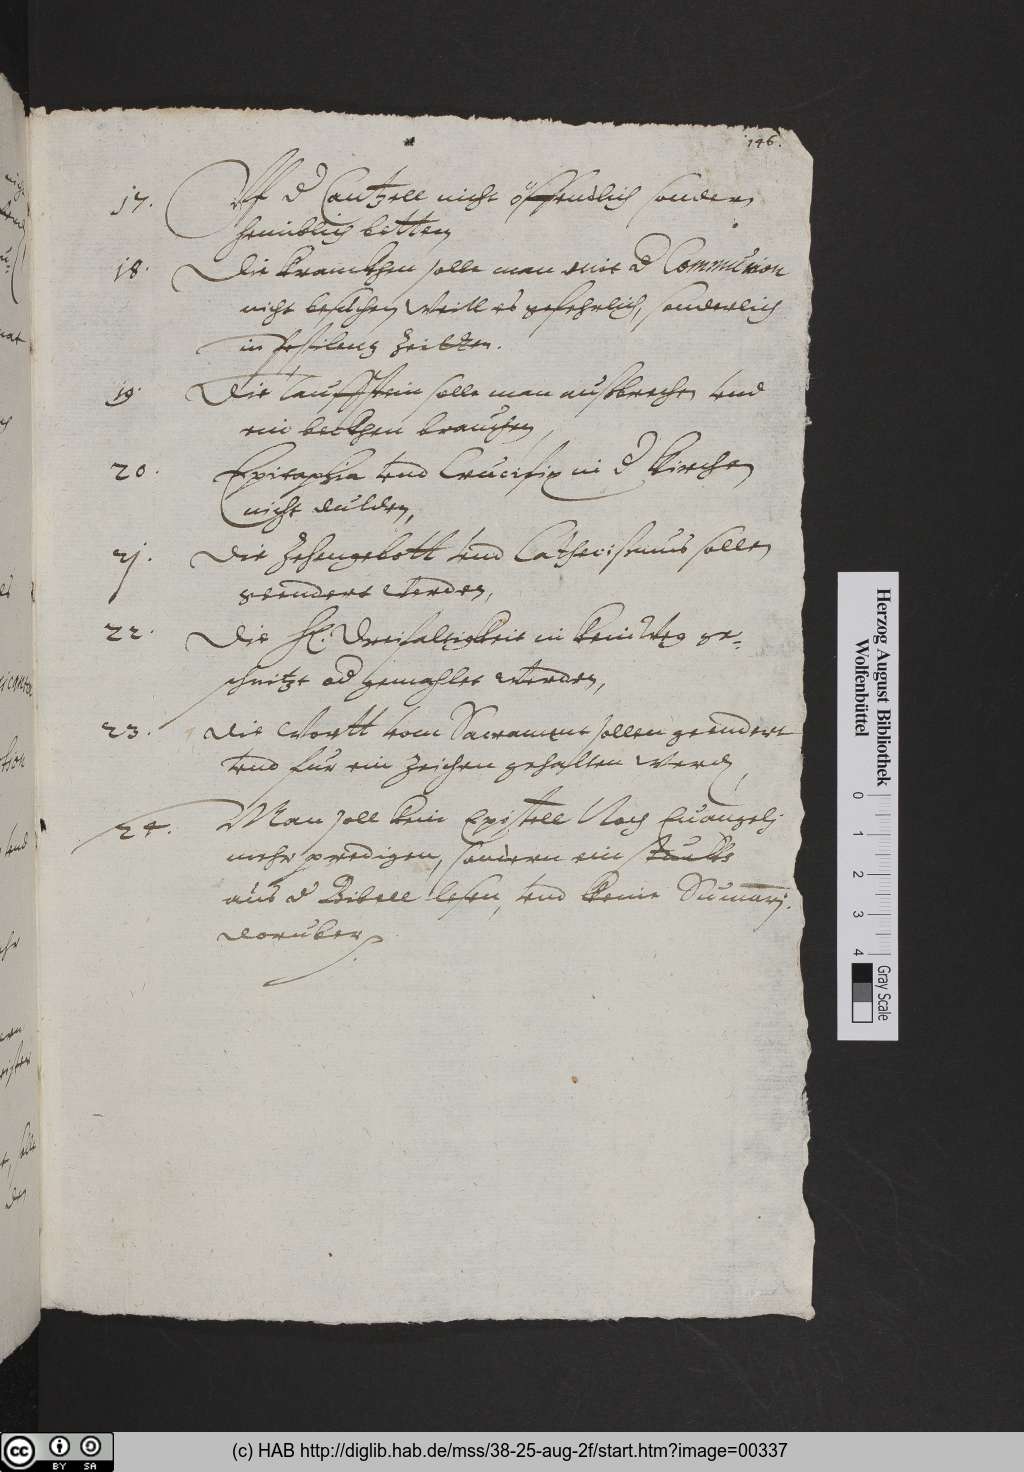 146.
17. Vff d Cantzell nicht öffendlich sonder
heimblich bitten
18. Die krancken solle man mit d Communion
nicht besuchen weill es gefehrlich, sonderlich
in pestilentz Zeitten.
19. Die Tauffstein solle man ausbrechen vnd
ein becken brauchen,
20. Epitaphia vnd Crucifix in d Kirchen
nicht dulden,
21. Die Zehengebott vnd Cathecismus sollen
geendert werden,
22. Die Hl: Dreifaltigkeit in kein weg ge-
schnitzt od gemahlet werden,
23. Die wortt vom Sacrament sollen geendert
vnd fur ein Zeichen gehalten werd,
24. Man soll kein Epistell Noch Euangelj
mehr predigen, sondern ein stuckh
aus d Bibell lesen, vnd keine Sumarj.
doruber.
Herzog August Bibliothek
Wolfenbüttel
0 1 2 3 4
Gray Scale
cc BY SA
(c) HAB http://diglib.hab.de/mss/38-25-aug-2f/start.htm?image=00337